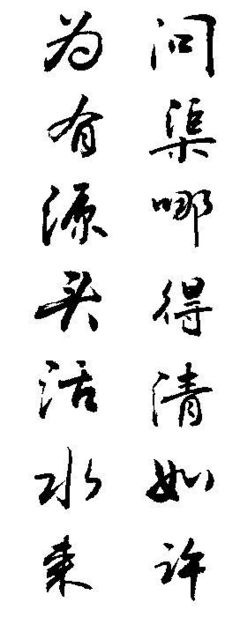 问渠哪得清如许
为有源头活水来